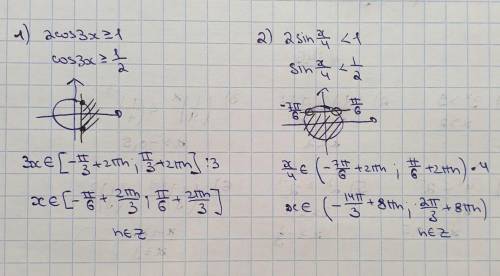 1) 2cos3x ≥ 1
cos3x ≥ 1/2
3x ∈ [-π/3 + 2πn; π/3 + 2πn] :3
x ∈ [-π/6 + 2πn/3; π/6 + 2πn/3]
n ∈ Z
2) 2sin x/4 < 1
sin x/4 < 1/2
-7π/6 π/6
x/4 ∈ (-7π/6 + 2πn; π/6 + 2πn) •4
x ∈ (-14π/3 + 8πn; 2π/3 + 8πn)
n ∈ Z